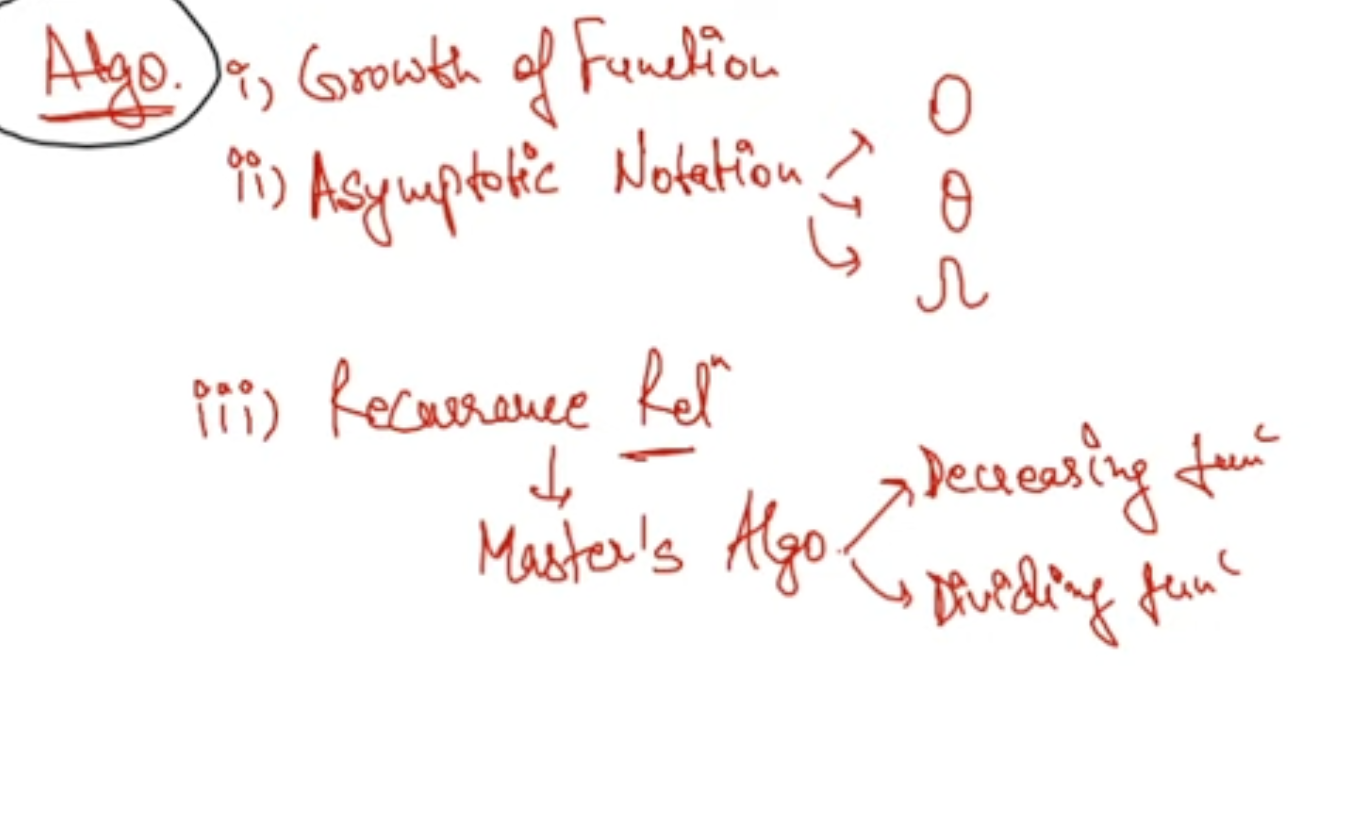 Algo. i) Growth of Function
ii) Asymptotic Notation → O
→ θ
→ Ω
iii) Recurrance Relⁿ
↓
Master's Algo. → Decreasing funᶜ
→ Dividing funᶜ